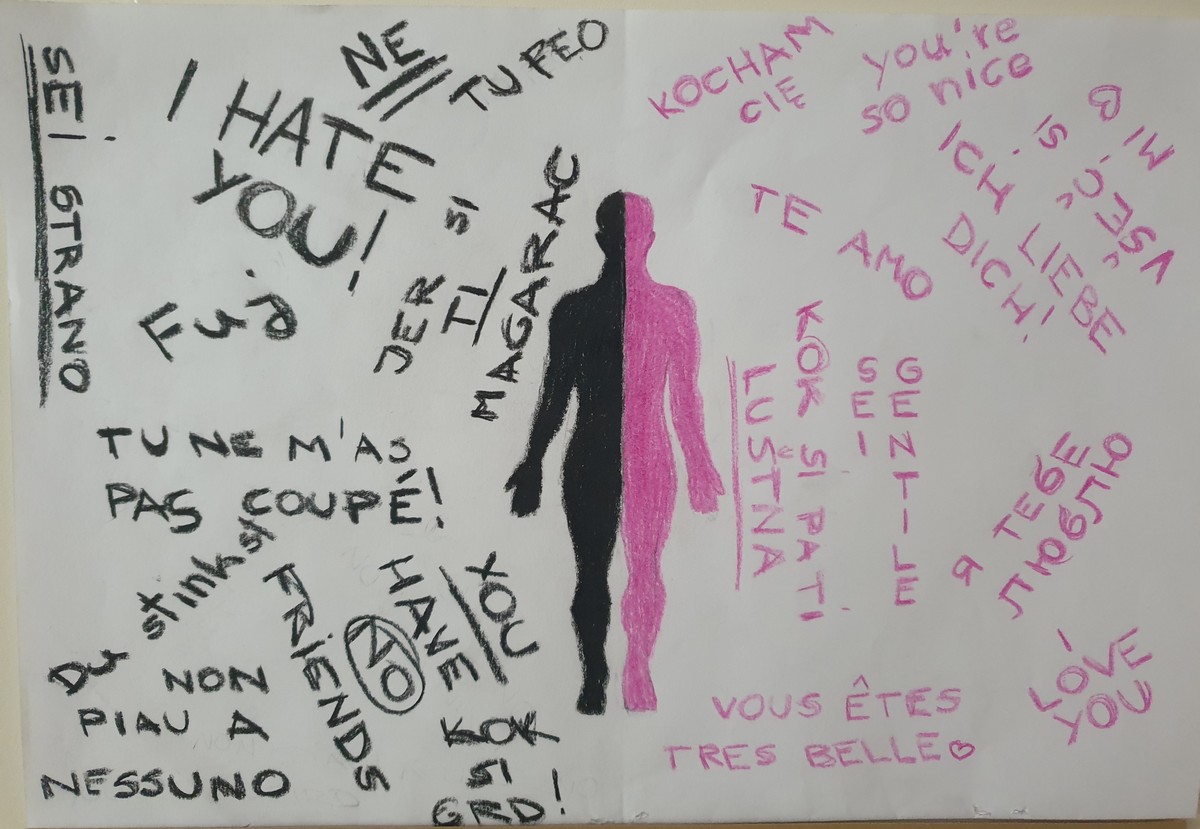 SEi STRANO
NE
TU FEO
I HATE
YOU!
JER TI SI
MAGARAC
TU NE M'AS
PAS COUPÉ!
Du stinkst
YOU
HAVE
NO
FRIENDS
NON
PIAU A
NESSUNO
KOK
SI
GRD!
KOCHAM
CIE
you're
so nice
VŠEČ
SI
MI
ICH LIEBE
DICH!
TE AMO
KOK SI PA TI
LUŠTNA
SEI
GENTILE
Я ТЕБЕ
ЛЮБЛЮ
I
LOVE
YOU
VOUS ÊTES
TRES BELLE♡